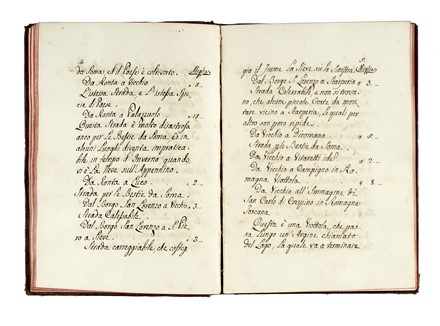 da Soma, e il Paese è coltivato. Miglia
Da Ronta a Vicchio 5
L'istessa Strada, e l'istessa Spe-
cie di Paese.
Da Ronta a Palazuolo 15
Questa Strada è molto disastrosa
anco per le Bestie da Soma, e in
alcuni Luoghi diventa impratica-
bile in tempo d'Inverno quando
vi è la Neve sull'Appennino.
Da Ronta a Luco 2
Strada per le Bestie da Soma.
Dal Borgo San Lorenzo a Vicchio 3
Strada Calessabile.
Dal Borgo San Lorenzo a S. Pie-
ro a Sieve 3
Strada carreggiabile, che costeg-
gia il Fiume la Sieve sulla Sinistra. Miglia
Dal Borgo S. Lorenzo a Scarperia 3
Strada Calessabile, e non si trova-
no, che alcune piccole Coste da mon-
tare vicino a Scarperia, le quali per
altro son poco ripide.
Da Vicchio a Dicomano 5
Strada per le Bestie da Soma.
Da Vicchio a Vitareti 7
Da Vicchio a Campigno in Ro-
magna Viottola 8
Da Vicchio all'Immagine di
San Carlo di Crespino in Romagna
Toscana
Questa è una Viottola, che pas-
sa lungo un Argine chiamato
del Lago, la quale va a terminare